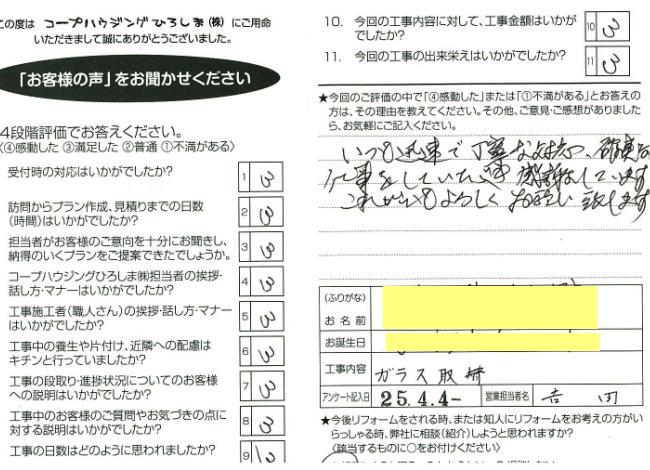 この度は コープハウジングひろしま(株) にご用命
いただきまして誠にありがとうございました。
「お客様の声」をお聞かせください
4段階評価でお答えください。
〈④感動した ③満足した ②普通 ①不満がある〉
受付時の対応はいかがでしたか?
1 3
訪問からプラン作成、見積りまでの日数
(時間)はいかがでしたか?
2 3
担当者がお客様のご意向を十分にお聞きし、
納得のいくプランをご提案できたでしょうか。
3 3
コープハウジングひろしま㈱担当者の挨拶・
話し方・マナーはいかがでしたか?
4 3
工事施工者(職人さん)の挨拶・話し方・マナー
はいかがでしたか?
5 3
工事中の養生や片付け、近隣への配慮は
キチンと行っていましたか?
6 3
工事の段取り・進捗状況についてのお客様
への説明はいかがでしたか?
7 3
工事中のお客様のご質問やお気づきの点に
対する説明はいかがでしたか?
8 3
工事の日数はどのように思われましたか?
9
10. 今回の工事内容に対して、工事金額はいかが
でしたか?
10 3
11. 今回の工事の出来栄えはいかがでしたか?
11 3
★今回のご評価の中で「④感動した」または「①不満がある」とお答えの
方は、その理由を教えてください。その他、ご意見・ご感想がありました
ら、お気軽にご記入ください。
いつも迅速で丁寧な対応、確実な
仕事をしていただき感謝しています
これからもよろしくお願い致します
(ふりがな)
お 名 前
お誕生日
工事内容 ガラス取替
アンケート記入日 25.4.4- 営業担当者名 吉田
★今後リフォームをされる時、または知人にリフォームをお考えの方がい
らっしゃる時、弊社に相談(紹介)しようと思われますか?
〈該当するものに○をお付けください〉